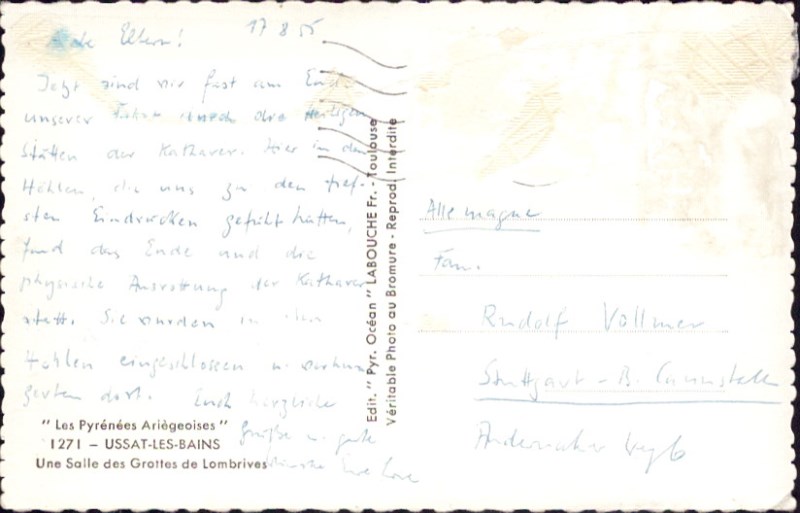 Liebe Eltern! 17 8 55
Jetzt sind wir fast am Ende
unserer Fahrt durch die Heiligen
Stätten der Katharer. Hier in den
Höhlen, die uns zu den tief-
sten Eindrücken geführt hatten,
fand das Ende und die
physische Ausrottung der Katharer
statt. Sie wurden in den
Höhlen eingeschlossen u. verhun
gerten dort. Euch herzliche
Grüße u. gute
Wünsche Eure
" Les Pyrénées Ariègeoises "
1271 – USSAT-LES-BAINS
Une Salle des Grottes de Lombrives
Edit. " Pyr. Océan " LABOUCHE Fr. - Toulouse
Véritable Photo au Bromure - Reprod. Interdite
Allemagne
Fam.
Rudolf Vollmer
Stuttgart - B. Cannstatt
Andernacher Weg 6